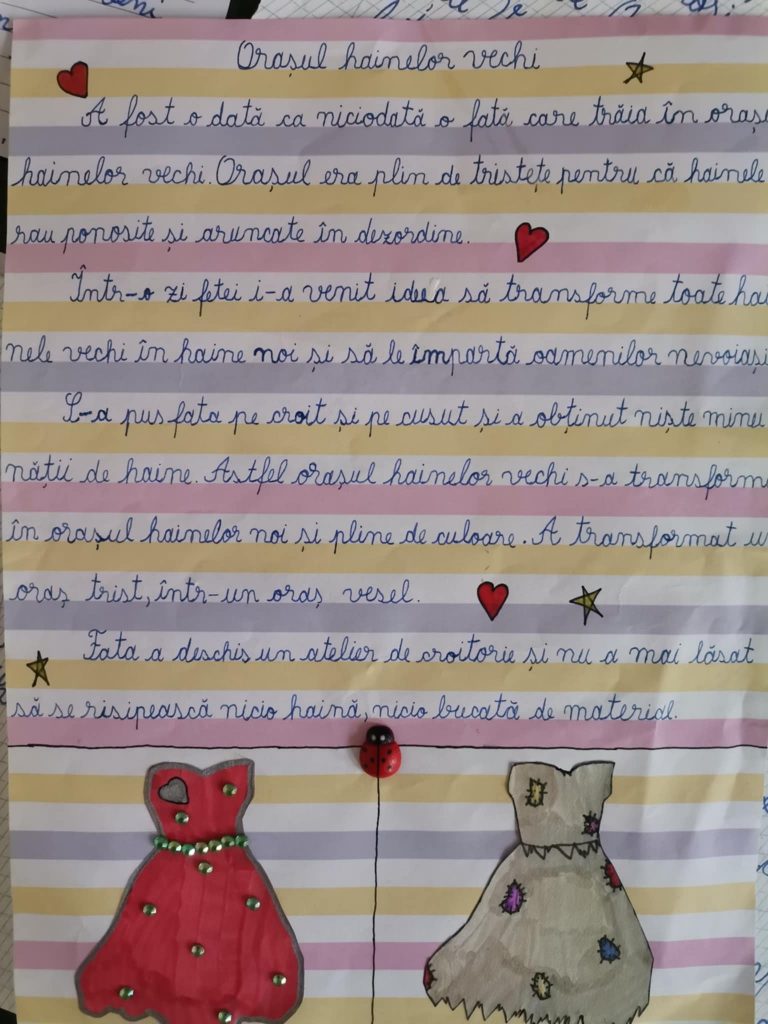 Orașul hainelor vechi
A fost o dată ca niciodată o fată care trăia în oraș
hainelor vechi. Orașul era plin de tristețe pentru că hainele
rau ponosite și aruncate în dezordine.
Într-o zi fetei i-a venit ideea să transforme toate hai
nele vechi în haine noi și să le împartă oamenilor nevoiași
S-a pus fata pe croit și pe cusut și a obținut niște minu
nății de haine. Astfel orașul hainelor vechi s-a transform
în orașul hainelor noi și pline de culoare. A transformat u
oraș trist, într-un oraș vesel.
Fata a deschis un atelier de croitorie și nu a mai lăsat
să se risipească nicio haină, nicio bucată de material.